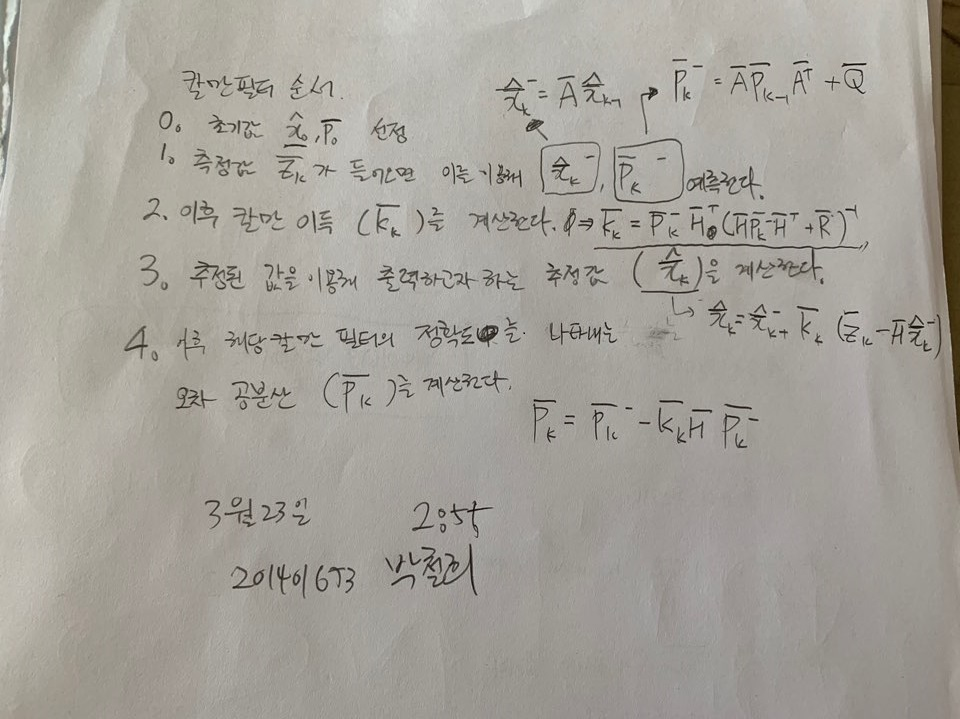 칼만필터 순서.
x̂ₖ⁻ = A̅ x̂ₖ₋₁ → P̅ₖ⁻ = A̅ P̅ₖ₋₁ A̅ᵀ + Q̅
0. 초기값 x̂₀, P̅₀ 선정
1. 측정값 z̅ₖ가 들어오면 이를 이용해 x̂ₖ⁻, P̅ₖ⁻ 예측한다.
2. 이후 칼만 이득 (K̅ₖ)를 계산한다. ⇒ K̅ₖ = P̅ₖ⁻ H̅ᵀ (H̅P̅ₖ⁻H̅ᵀ + R̅)⁻¹
3. 추정된 값을 이용해 출력하고자 하는 추정값 (x̂ₖ)을 계산한다.
↳ x̂ₖ = x̂ₖ⁻ + K̅ₖ (z̅ₖ - H̅x̂ₖ⁻)
4. 이후 해당 칼만 필터의 정확도를 나타내는
오차 공분산 (P̅ₖ)를 계산한다.
P̅ₖ = P̅ₖ⁻ - K̅ₖH̅ P̅ₖ⁻
3월 23일 2:55
201401653 박철희